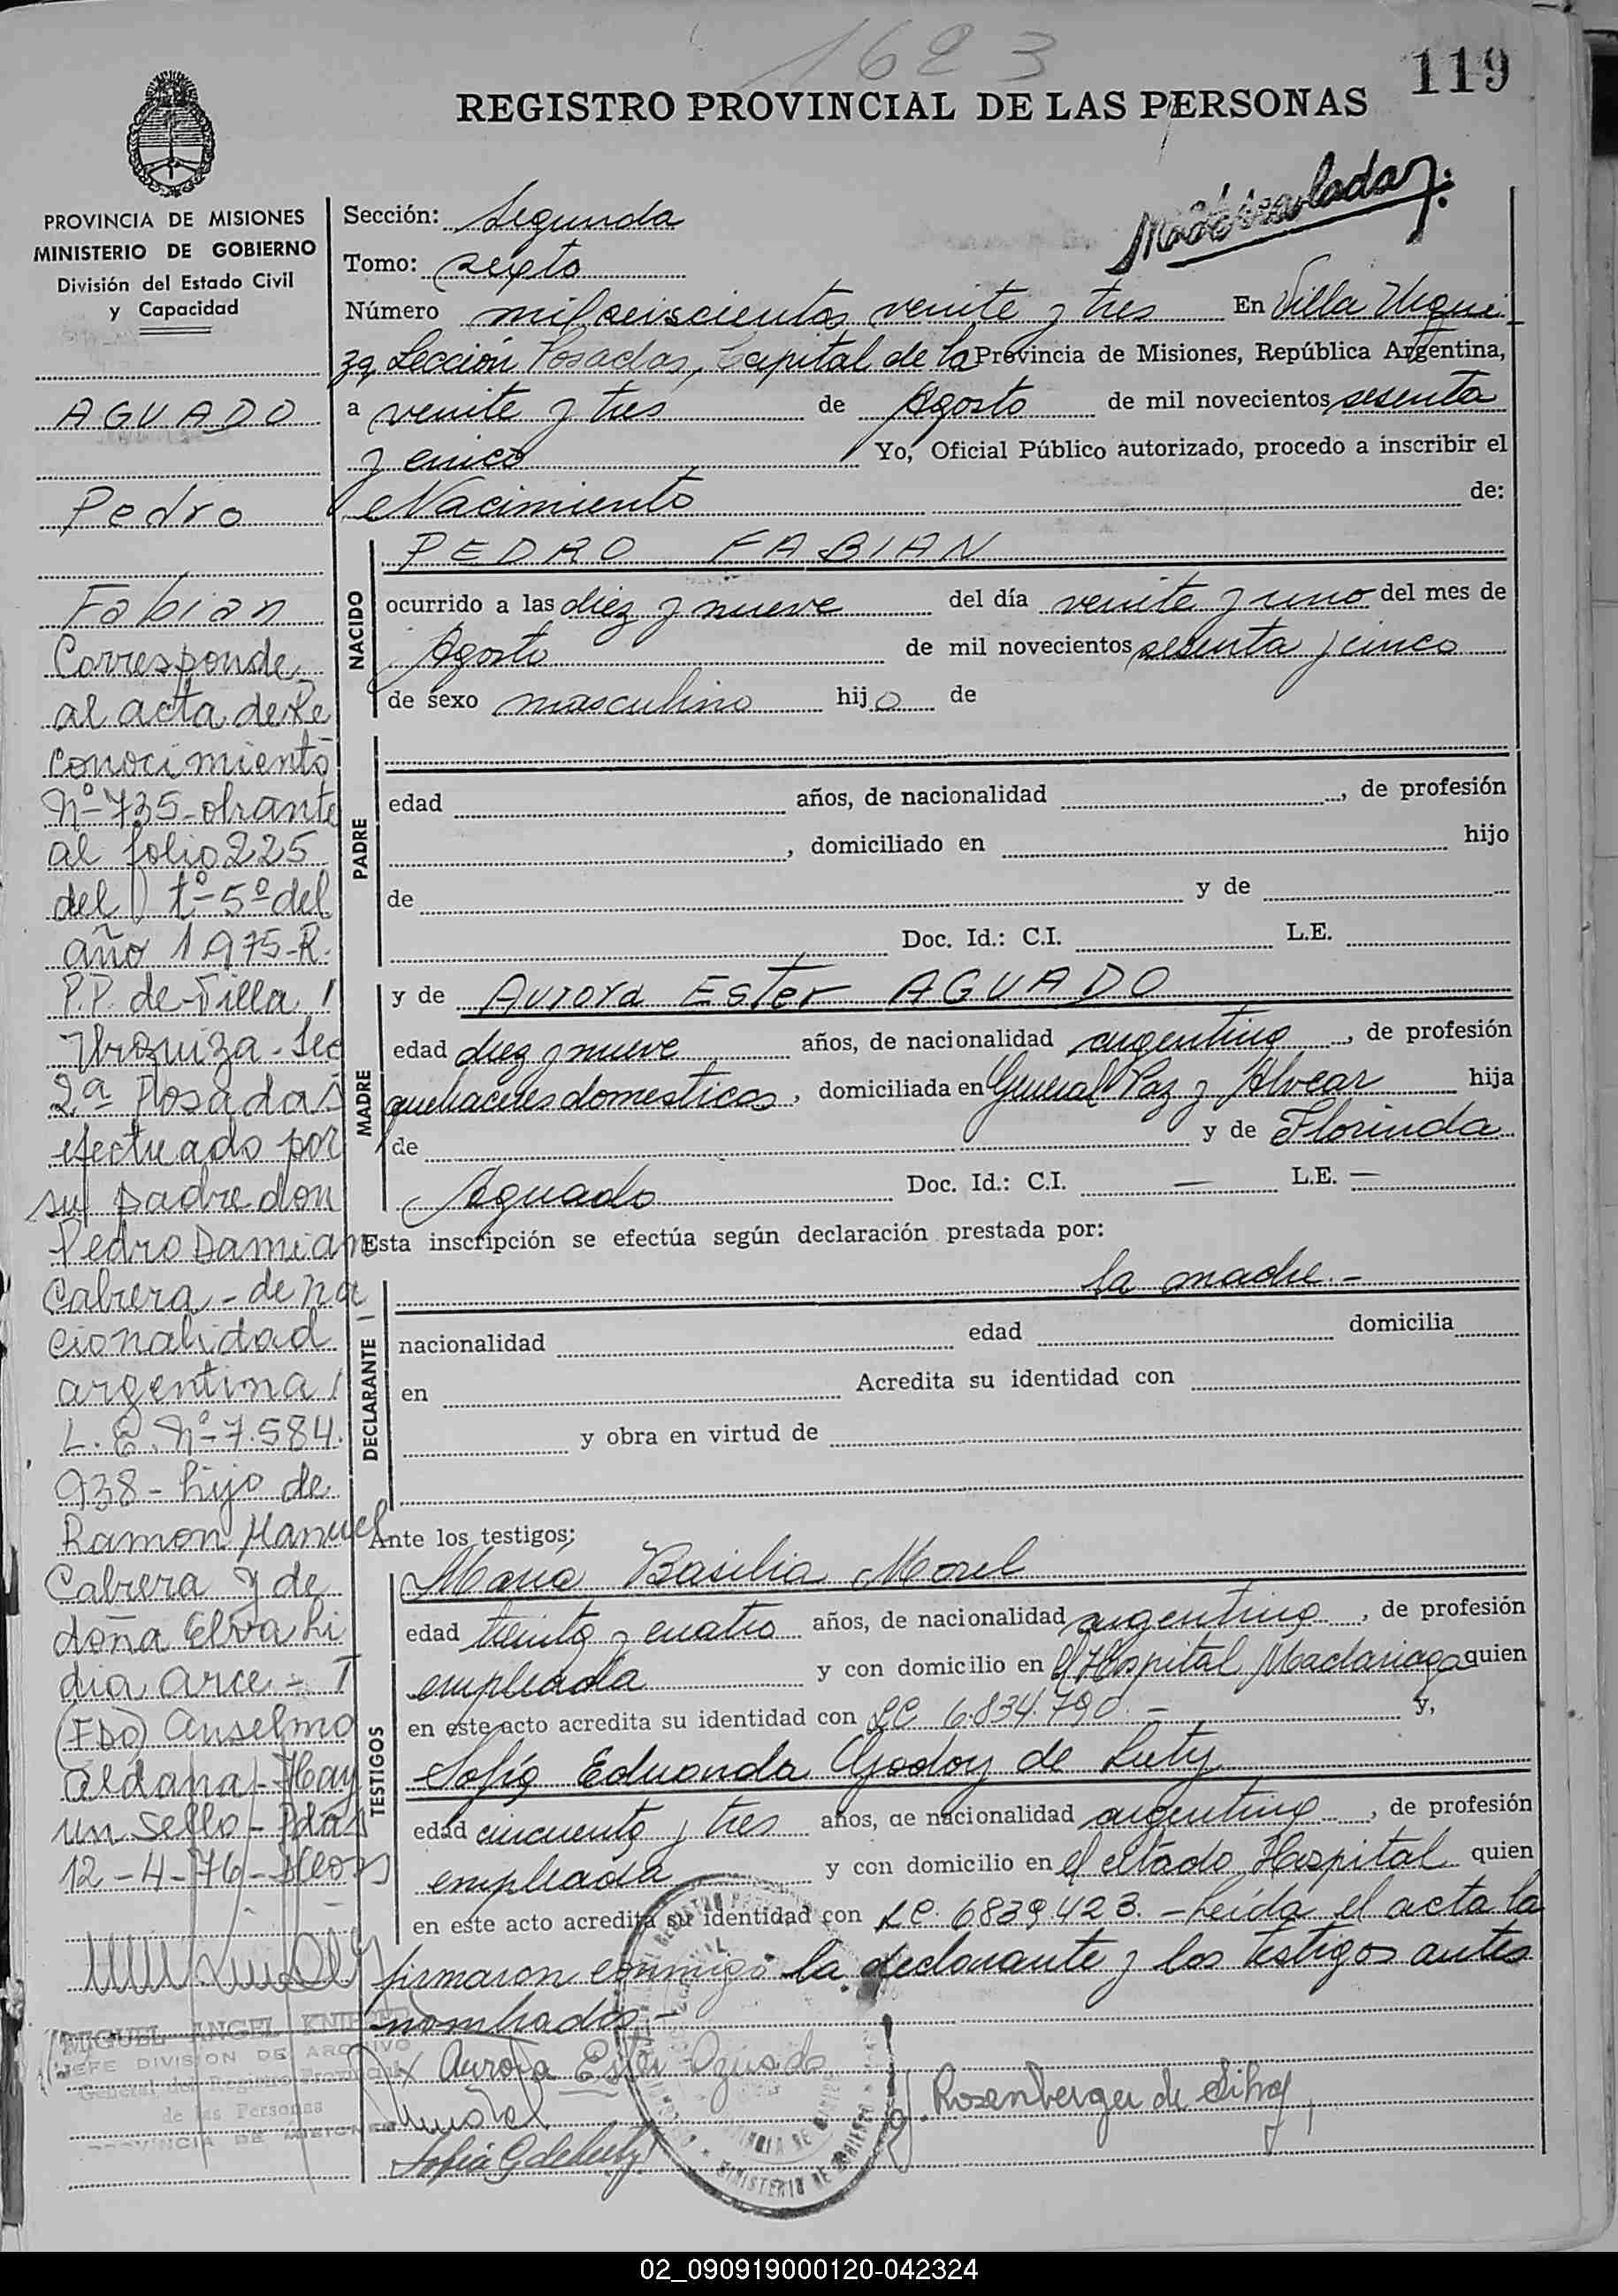 1623
119
REGISTRO PROVINCIAL DE LAS PERSONAS
PROVINCIA DE MISIONES
MINISTERIO DE GOBIERNO
División del Estado Civil
y Capacidad
AGUADO
Pedro
Fabian
Corresponde
al acta de Re
conocimiento
Nº 735 obrante
al folio 225
del tº 5º del
año 1975-R.
P.P. de Villa
Urquiza-Sec
2ª Posadas
efectuado por
su padre don
Pedro Damian
Cabrera - de na
cionalidad
argentina
L.E. Nº 7.584.
938 - hijo de
Ramon Manuel
Cabrera y de
doña Elva Li
dia Arce -
(FDO) Anselmo
Aldana - Hay
un sello - Pdas
12-4-76-
MIGUEL ANGEL
JEFE DIVISION DE ARCHIVO
General del Registro Provincial
de las Personas
PROVINCIA DE MISIONES
Sección: Segunda
Tomo: sexto
Número mil seiscientos veinte y tres En Villa Urqui
za Sección Posadas, Capital de la Provincia de Misiones, República Argentina,
a veinte y tres de Agosto de mil novecientos sesenta
y cinco Yo, Oficial Público autorizado, procedo a inscribir el
Nacimiento de:
NACIDO
PEDRO FABIAN
ocurrido a las diez y nueve del día veinte y uno del mes de
Agosto de mil novecientos sesenta y cinco
de sexo masculino hijo de
PADRE
edad años, de nacionalidad , de profesión
, domiciliado en hijo
de y de
Doc. Id.: C.I. L.E.
MADRE
y de Aurora Ester AGUADO
edad diez y nueve años, de nacionalidad argentina, de profesión
quehaceres domesticos, domiciliada en General Paz y Alvear hija
de y de Florinda
Aguado Doc. Id.: C.I. — L.E. —
Esta inscripción se efectúa según declaración prestada por:
DECLARANTE
la madre.-
nacionalidad edad domicilia
en Acredita su identidad con
y obra en virtud de
Ante los testigos:
TESTIGOS
María Basilia Morel
edad treinta y cuatro años, de nacionalidad argentina, de profesión
empleada y con domicilio en el Hospital Madariaga quien
en este acto acredita su identidad con LC 6.834.790.- y,
Sofía Eduarda Godoy de Luty
edad cincuenta y tres años, de nacionalidad argentina, de profesión
empleada y con domicilio en el citado Hospital quien
en este acto acredita su identidad con LC. 6839423.- Leída el acta la
firmaron conmigo la declarante y los testigos antes
nombrados.-
x Aurora Ester Aguado
Rosenberger de Silva
Sofia G de Luty
02_090919000120-042324